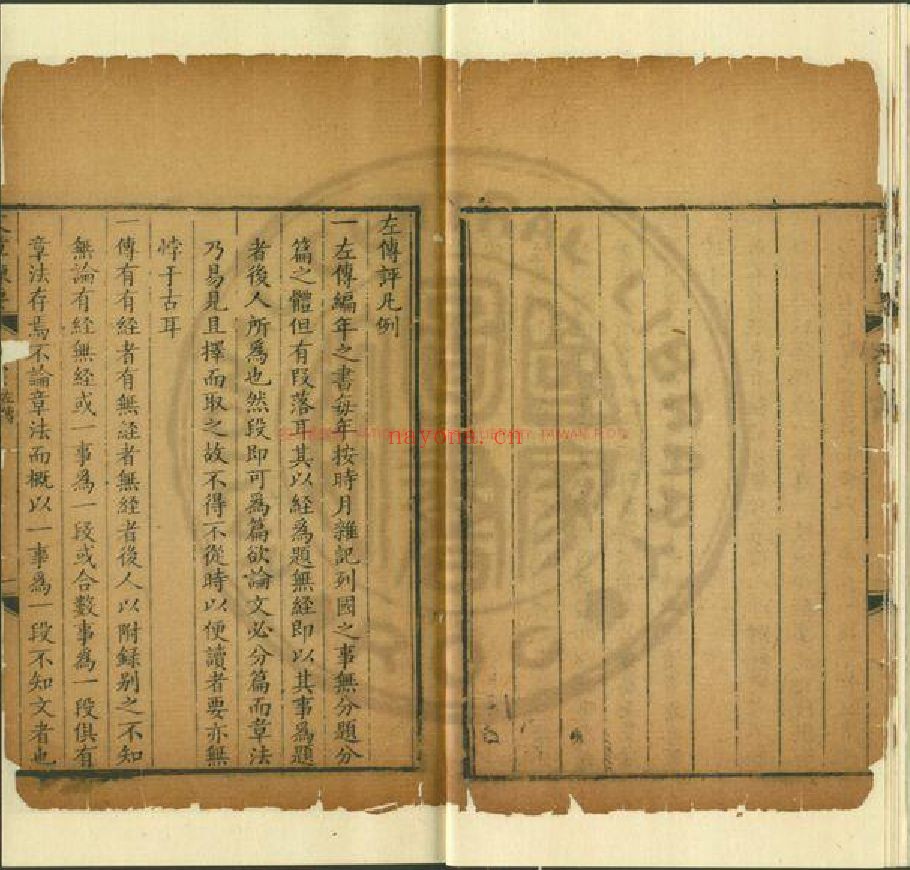 左傳評凡例
一左傳編年之書每年按時月雜記列國之事無分題分
篇之體但有段落耳其以經為題無經即以其事為題
者後人所為也然段即可為篇欲論文必分篇而章法
乃易見且擇而取之故不得不從時以便讀者要亦無
悖于古耳
一傳有有經者有無經者無經者後人以附録别之不知
無論有経無経或一事為一段或合數事為一段俱有
章法存焉不論章法而概以一事為一段不知文者也
nayona.cn